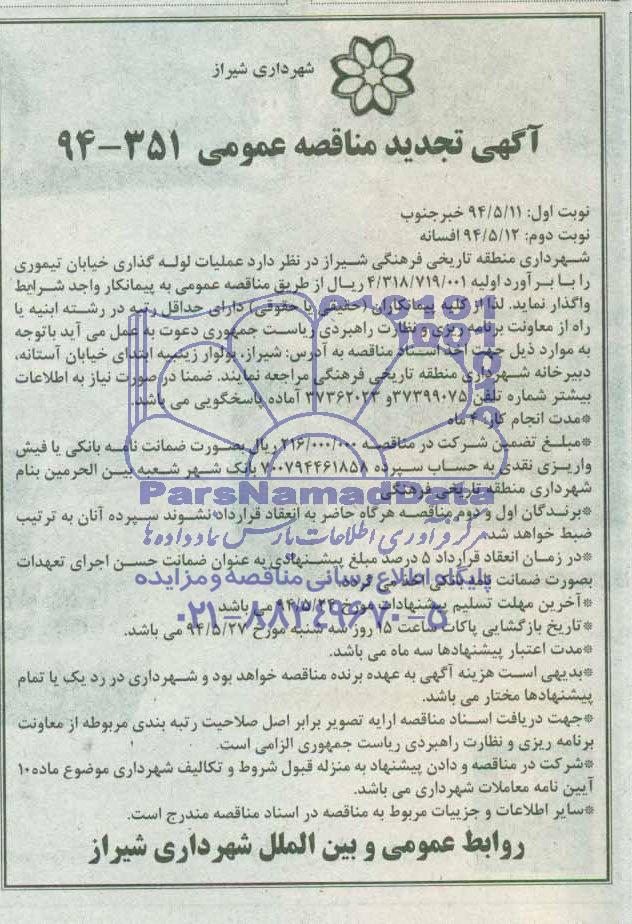 شهرداری شیراز
آگهی تجدید مناقصه عمومی ۳۵۱-۹۴
نوبت اول: ۹۴/۵/۱۱ خبرجنوب
نوبت دوم: ۹۴/۵/۱۲ افسانه
شهرداری منطقه تاریخی فرهنگی شیراز در نظر دارد عملیات لوله گذاری خیابان تیموری
را با برآورد اولیه ۴/۳۱۸/۷۱۹/۰۰۱ ریال از طریق مناقصه عمومی به پیمانکار واجد شرایط
واگذار نماید. لذا از کلیه پیمانکاران (حقیقی یا حقوقی) دارای حداقل رتبه در رشته ابنیه یا
راه از معاونت برنامه ریزی و نظارت راهبردی ریاست جمهوری دعوت به عمل می آید باتوجه
به موارد ذیل جهت اخذ اسناد مناقصه به آدرس: شیراز، بولوار زینبیه ابتدای خیابان آستانه،
دبیرخانه شهرداری منطقه تاریخی فرهنگی مراجعه نمایند. ضمنا در صورت نیاز به اطلاعات
بیشتر شماره تلفن ۳۷۳۹۹۰۷۵ و ۳۷۳۶۲۰۲۳ آماده پاسخگویی می باشد.
*مدت انجام کار: ۴ ماه
*مبلغ تضمین شرکت در مناقصه ۲۱۶/۰۰۰/۰۰۰ ریال بصورت ضمانت نامه بانکی یا فیش
واریزی نقدی به حساب سپرده ۷۰۰۷۹۴۴۶۱۸۵۸ بانک شهر شعبه بین الحرمین بنام
شهرداری منطقه تاریخی فرهنگی
ParsNamadData
*برندگان اول و دوم مناقصه هرگاه حاضر به انعقاد قرارداد نشوند سپرده آنان به ترتیب
ضبط خواهد شد.
مرکز فرآوری اطلاعات پارس نماد داده ها
*در زمان انعقاد قرارداد ۵ درصد مبلغ پیشنهادی به عنوان ضمانت حسن اجرای تعهدات
بصورت ضمانت نامه بانکی اخذ می گردد.
پایگاه اطلاع رسانی مناقصه و مزایده
*آخرین مهلت تسلیم پیشنهادات مورخ می باشد
۰۲۱-۸۸۳۴۹۶۷۰-۵
*تاریخ بازگشایی پاکات ساعت ۱۵ روز سه شنبه مورخ ۹۴/۵/۲۷ می باشد.
*مدت اعتبار پیشنهادها سه ماه می باشد.
*بدیهی است هزینه آگهی به عهده برنده مناقصه خواهد بود و شهرداری در رد یک یا تمام
پیشنهادها مختار می باشد.
*جهت دریافت اسناد مناقصه ارایه تصویر برابر اصل صلاحیت رتبه بندی مربوطه از معاونت
برنامه ریزی و نظارت راهبردی ریاست جمهوری الزامی است.
*شرکت در مناقصه و دادن پیشنهاد به منزله قبول شروط و تکالیف شهرداری موضوع ماده۱۰
آیین نامه معاملات شهرداری می باشد.
*سایر اطلاعات و جزییات مربوط به مناقصه در اسناد مناقصه مندرج است.
روابط عمومی و بین الملل شهرداری شیراز